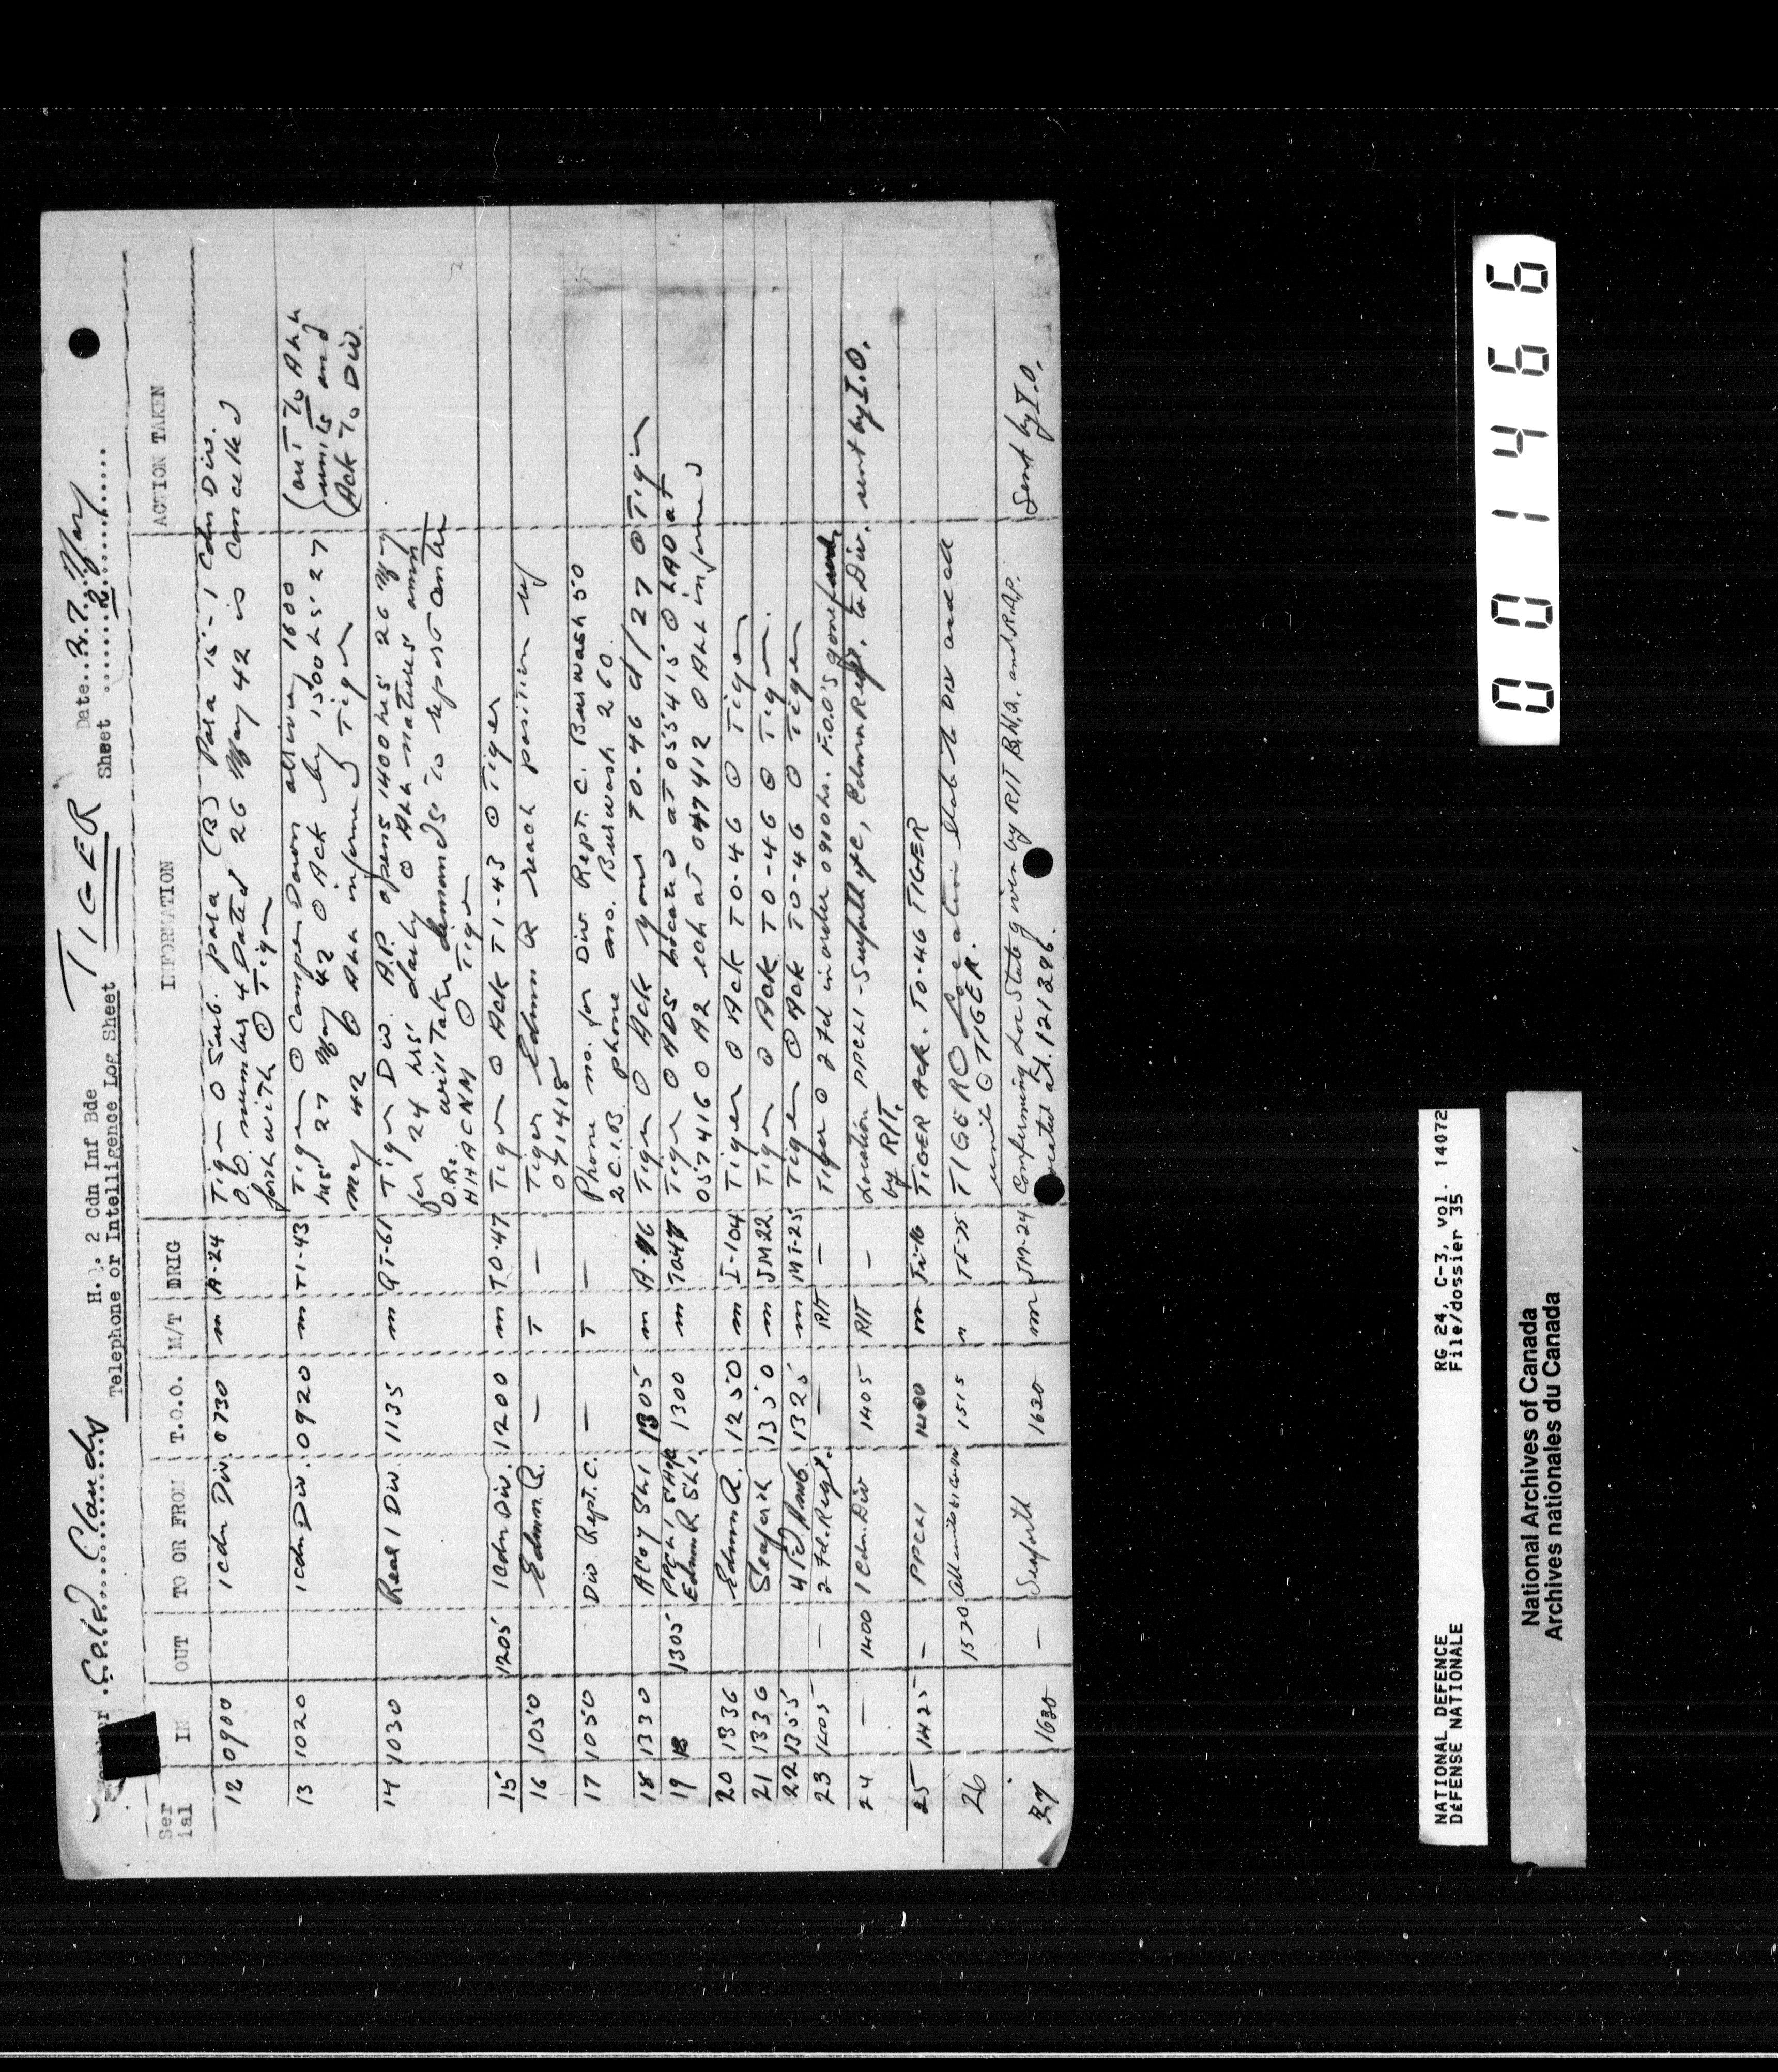 TIGER
H.Q. 2 Cdn Inf Bde
Date..27..May
Telephone or Intelligence Log Sheet
Sheet ........2........
Weather .Cold....Cloudy
Ser ial IN OUT TO OR FROM T.O.O. M/T ORIG INFORMATION ACTION TAKEN
12 0900 1 Cdn Div. 0730 m A-24 Tiger O Sub. para (B) Para 15 - 1 Cdn Div.
O.O. number 4 Dated 26 May 42 is cancelled
forthwith O Tiger
13 1020 1 Cdn Div. 0920 m TI-43 Tiger O Camper Down 1600 (out To
hrs 27 May 42 O Ack by 1500 hrs 27 (units and
May 42 O informed Tiger (Ack To Div.
14 1030 Real 1 Div. 1135 m QT-61 Tiger Div. A.P. opens 1400 hrs 26 May
for 24 hrs daily O natures amn
D.Rs. will Take demands to report centre
HHACNM O Tiger
15 1205 1 Cdn Div. 1200 m TO-47 Tiger O Ack TI-43 O Tiger
16 1050 Edmn. R. — T — Tiger Edmn R reach position
071418
17 1050 Div Rept. C. — T — Phone no. for Div Rept. C. Burwash 50
2 C.I.B. phone no. Burwash 260
18 1330 Sh1 1305 m A-96 Tiger O Ack your TO-46 d/27 O Tiger
19 1305 PPCLI SHofC Edmn R Sh1. 1300 m Tiger O ADS Located at 055415 O LAD at
057416 O A2 ech at 047412 O informed
20 1336 Edmn R. 1250 m I-104 Tiger O Ack TO-46 O Tiger
21 1336 Seaforth 1350 m JM22 Tiger O Ack TO-46 O Tiger.
22 1355 4 Fd Amb. 1325 m MI-25 Tiger O Ack TO-46 O Tiger
23 1405 — 2 Fd. Regt. — R/T — Tiger O 2 Fd in order 0900 hrs. F.O.O's gone
24 — 1400 1 Cdn. Div 1405 R/T — Location PPCLI - Seaforth of C, Edmn Regt. to Div. sent by I.O.
by R/T.
25 1425 — PPCLI 1400 m TIGER Ack. TO-46 TIGER
26 1520 All units 1515 m TIGER O Location to Div and all
units O TIGER.
27 1630 — Seaforth 1620 m JM-24 Confirming Loc Stat given by R/T B.H.Q. and R.A.P. Sent by I.O.
located at 121286.
001466
NATIONAL DEFENCE RG 24, C-3, vol. 14072
DÉFENSE NATIONALE File/dossier 35
National Archives of Canada
Archives nationales du Canada